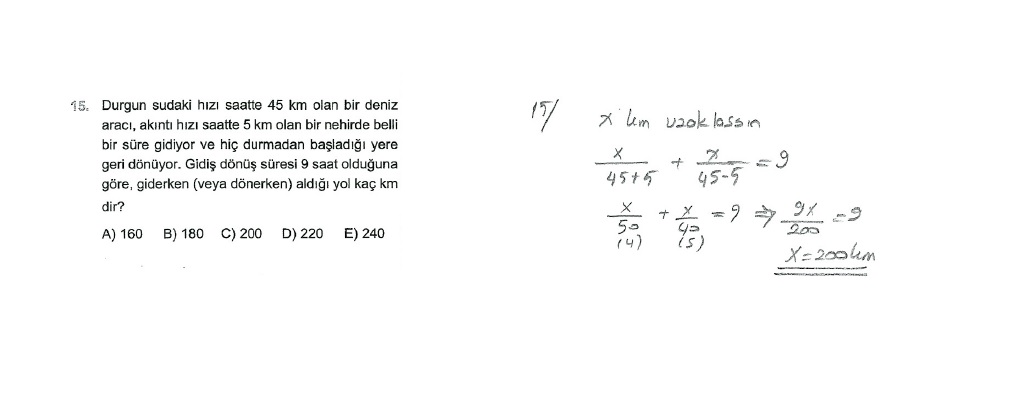 15. Durgun sudaki hızı saatte 45 km olan bir deniz
aracı, akıntı hızı saatte 5 km olan bir nehirde belli
bir süre gidiyor ve hiç durmadan başladığı yere
geri dönüyor. Gidiş dönüş süresi 9 saat olduğuna
göre, giderken (veya dönerken) aldığı yol kaç km
dir?
A) 160 B) 180 C) 200 D) 220 E) 240
15/ x km uzaklaşsın
x/(45+5) + x/(45-5) = 9
x/50 + x/40 = 9 ⇒ 9x/200 = 9
(4) (5)
x=200km